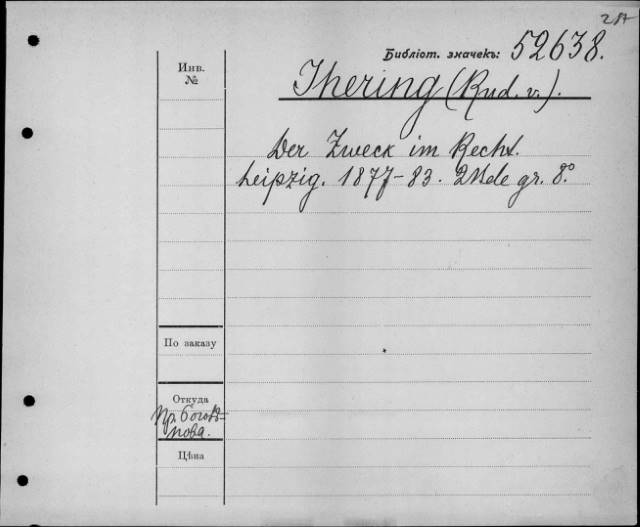 Библіот. значекъ: 52638.
Инв.
№
Ihering (Rud. v.).
Der Zweck im Recht.
Leipzig. 1877-83. 2 Bde gr. 8.º
По заказу
Откуда
Пр. Боголѣ-
пова.
Цѣна